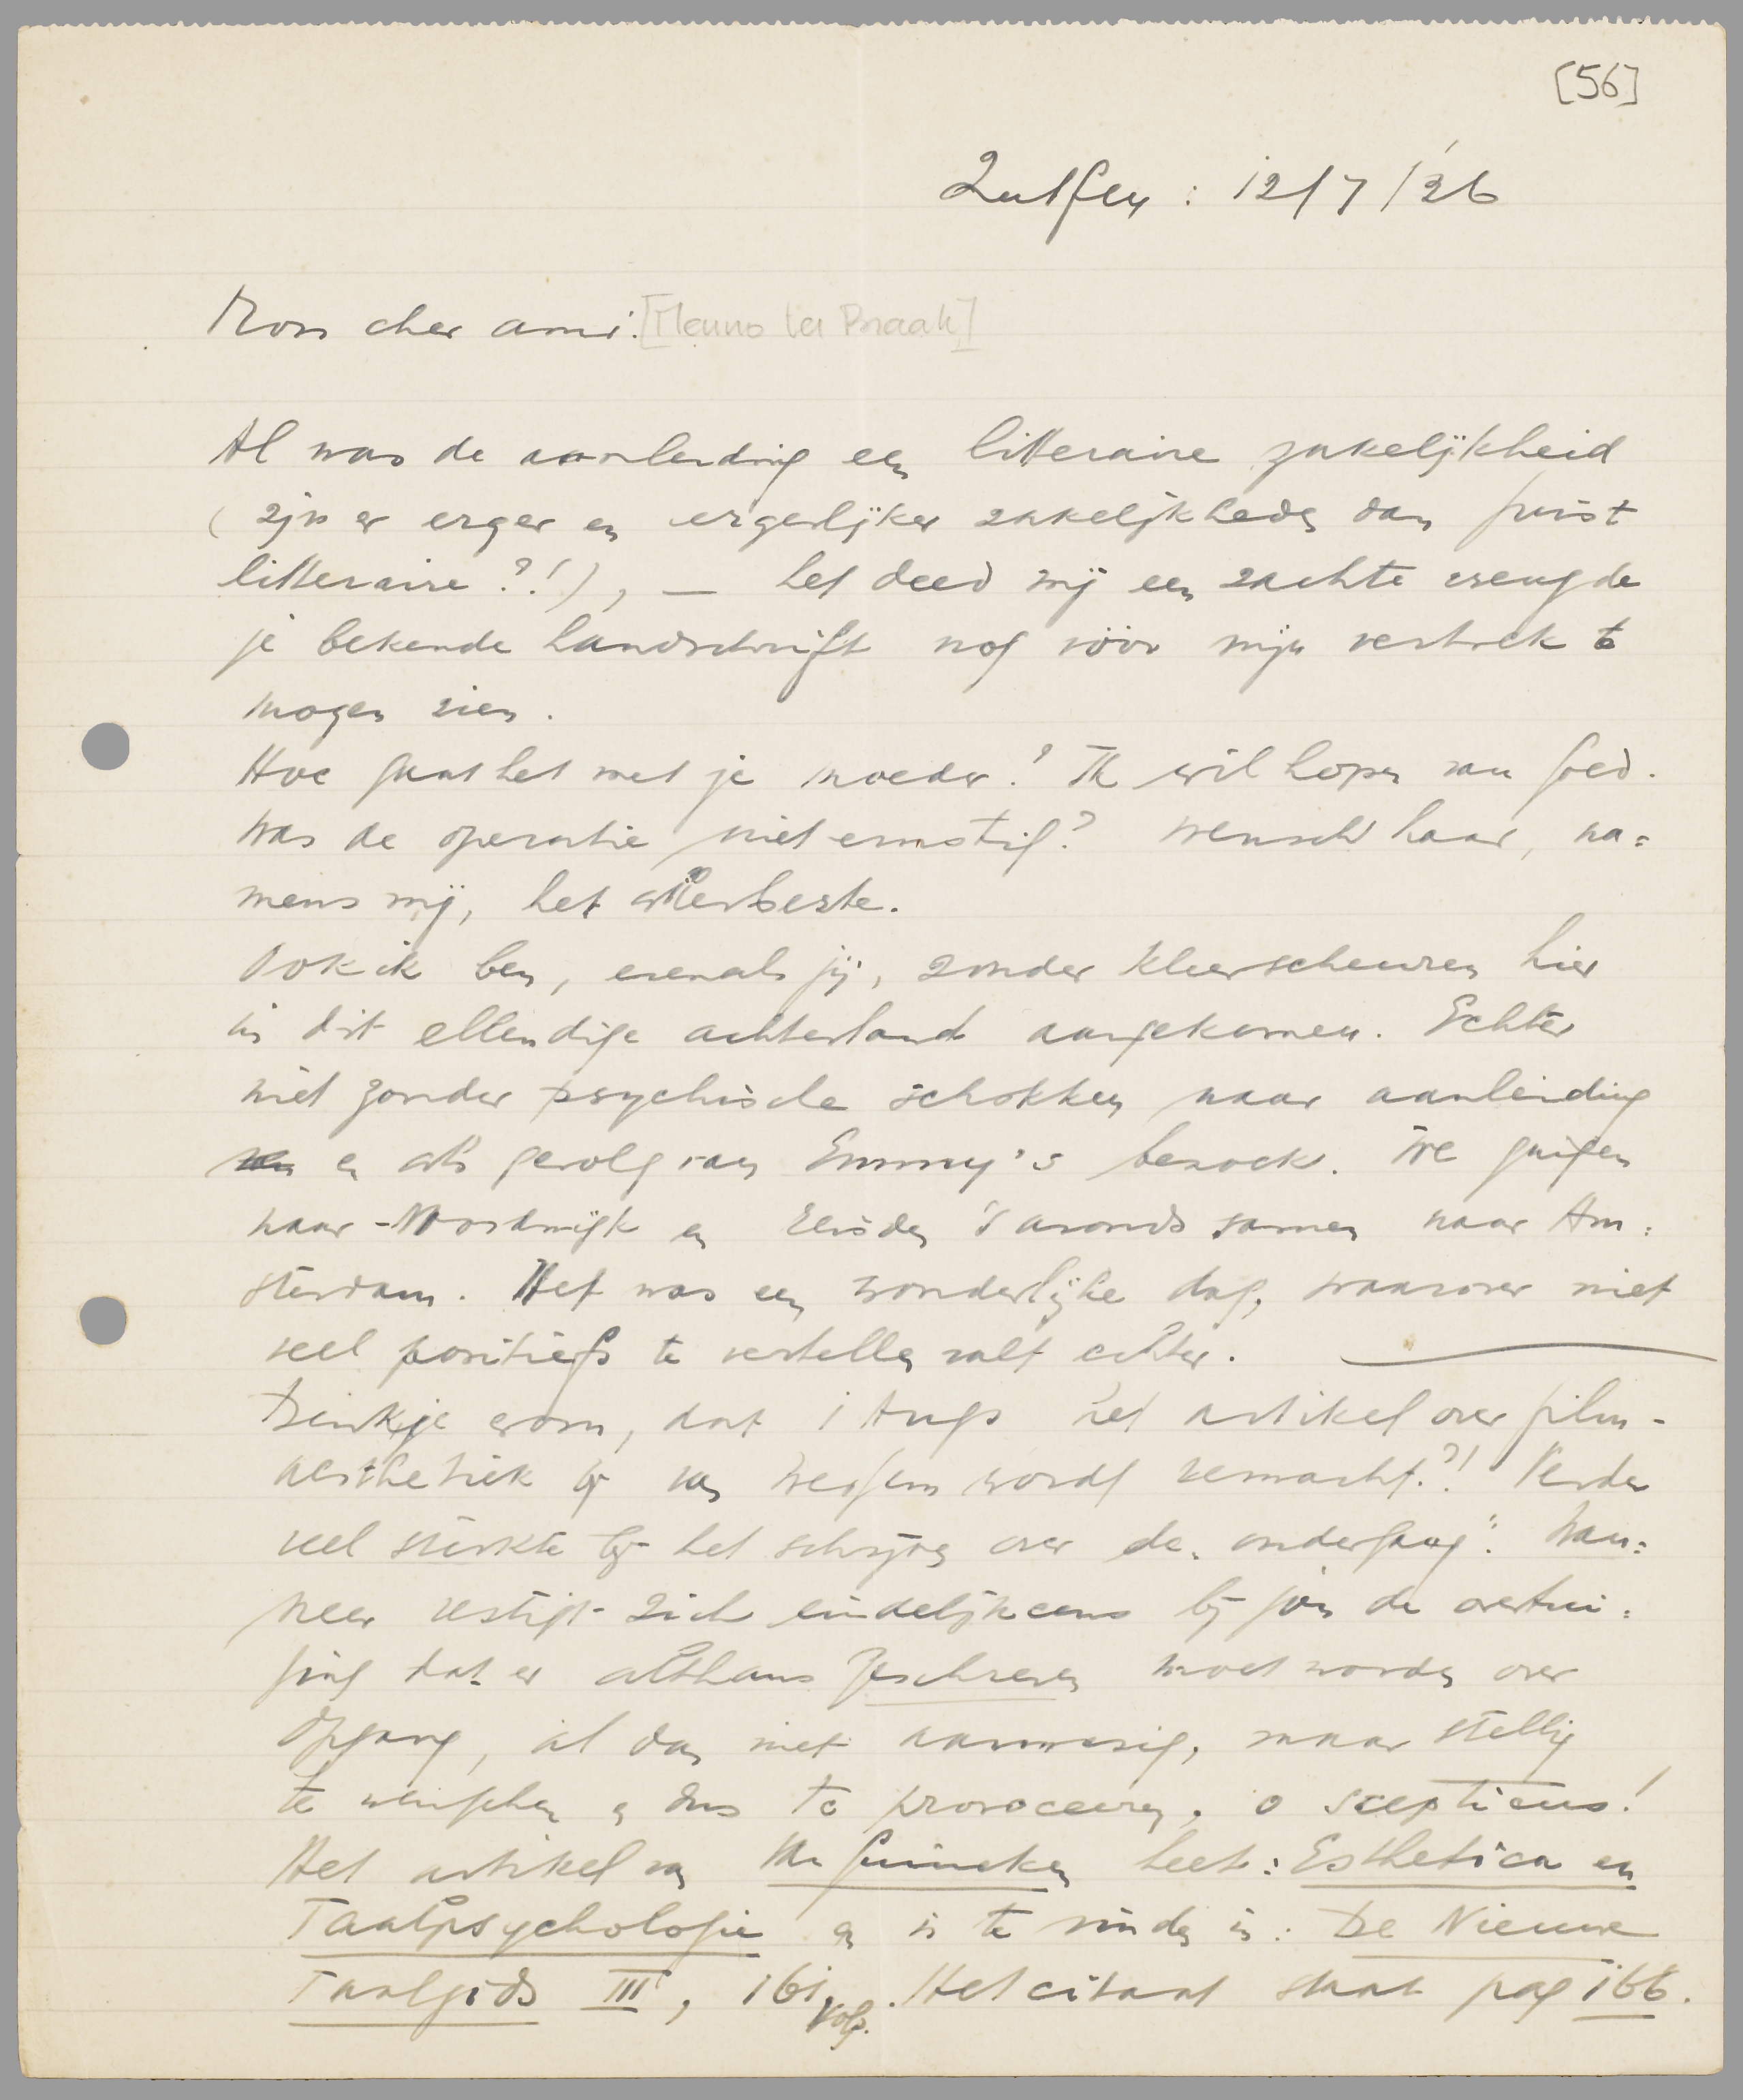 [56]
Zutfen : 12/7/'26
Mon cher ami. [Menno ter Braak]
Al was de aanleiding een litteraire zakelijkheid
(zijn er erger en ergerlijker zakelijkheden dan juist
litteraire?!), — het deed mij een zachte vreugde
je bekende handschrift nog vóór mijn vertrek te
mogen zien.
Hoe gaat het met je moeder? Ik wil hopen van goed.
Was de operatie niet ernstig? Wensch haar, na=
mens mij, het allerbeste.
Ook ik ben, evenals jij, zonder kleerscheuren hier
in dit ellendige achterland aangekomen. Echter
niet zonder psychische schokken naar aanleiding
en als gevolg van Emmy's bezoek. We gingen
naar Noordwijk en reisden 's avonds samen naar Am=
sterdam. Het was een wonderlijke dag, waarover niet
veel positiefs te vertellen valt echter.
Denk je erom, dat 1 Aug het artikel over film-
aesthetiek bij van Wessem wordt verwacht?! Verder
veel sterkte bij het schrijven over de „ondergang". Wan=
neer vestigt zich eindelijk eens bij jou de overtui=
ging dat er althans geschreven moet worden over
Opgang, al dan niet aanwezig, maar stellig
te wenschen en dus te provoceeren, o scepticus!
Het artikel van v. Ginneken heet: Esthetica en
Taalpsychologie en is te vinden in: De Nieuwe
Taalgids III, 161 volg. Het citaat staat pag 166.